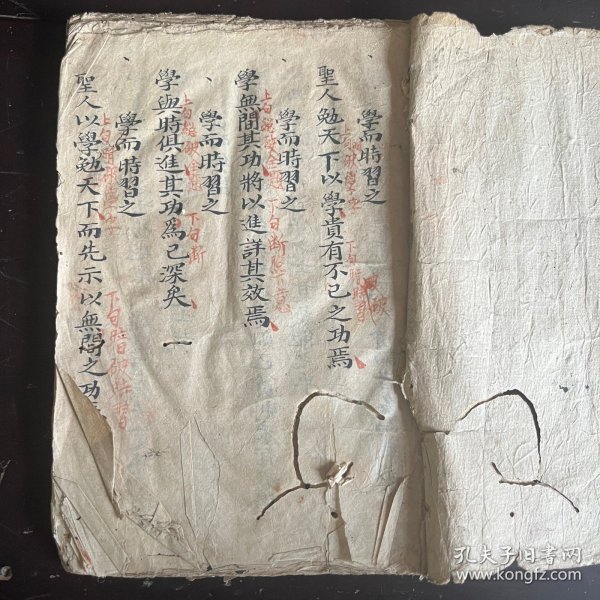 學而時習之
聖人勉天下以學貴有不已之功焉
學而時習之
學無間其功將以進詳其效焉
學而時習之
學與時俱進其功為已深矣 一
學而時習之
聖人以學勉天下而先示以無間之功
上句
下句斷
下句暗
孔夫子旧书网
www.kongfz.com